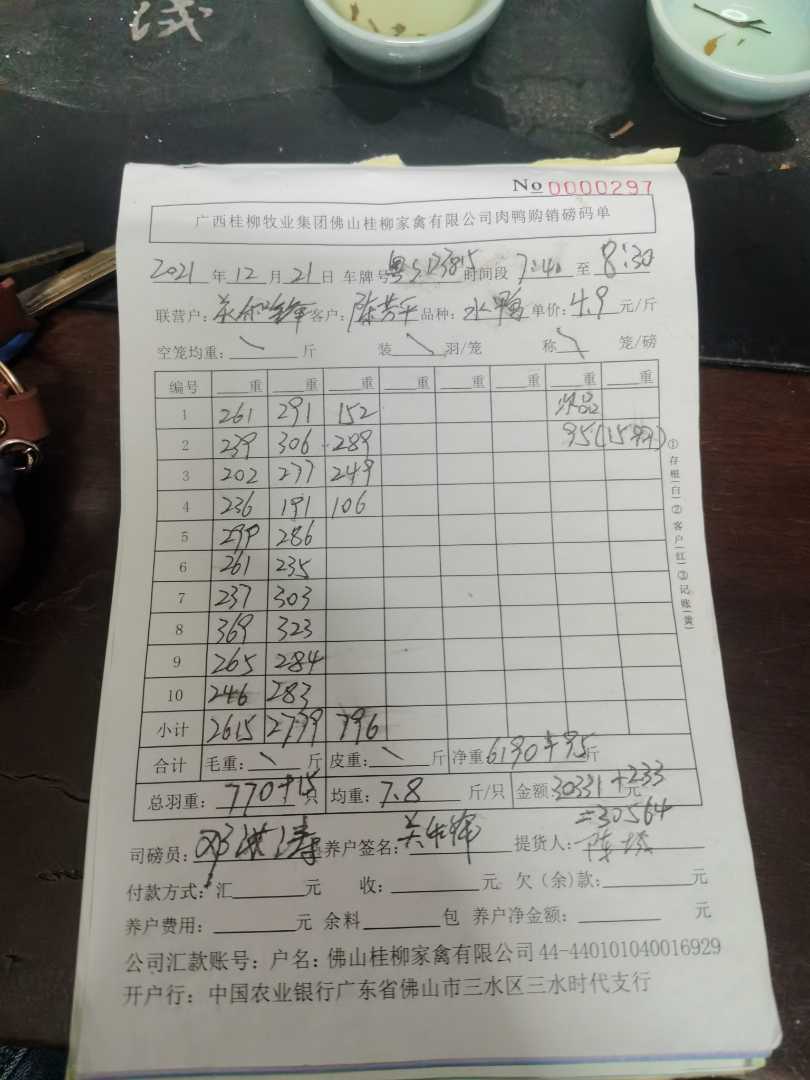 浅
No 0000297
广西桂柳牧业集团佛山桂柳家禽有限公司肉鸭购销磅码单
2021 年 12 月 21 日 车牌号 粤 时间段 7:40 至 8:30
联营户: 客户: 陈芳平 品种: 水鸭 单价: 4.9 元/斤
空笼均重: \ 斤 装 \ 羽/笼 称 \ 笼/磅
编号 重 重 重 重 重 重 重 重
1 261 291 152 次品
2 239 306 289 95(15只)
3 202 277 249
4 236 191 106
5 299 286
6 261 235
7 237 303
8 369 323
9 265 284
10 246 283
小计 2615 2779 796
合计 毛重: \ 斤 皮重: \ 斤 净重 6190+95 斤
总羽重: 770+15 只 均重: 7.8 斤/只 金额 30331+233 元
=30564
司磅员: 邓洪涛 养户签名: 提货人: 陈
付款方式: 汇 元 收: 元 欠(余)款: 元
养户费用: 元 余料 包 养户净金额: 元
公司汇款账号: 户名: 佛山桂柳家禽有限公司 44-440101040016929
开户行: 中国农业银行广东省佛山市三水区三水时代支行
①存根(白)②客户(红)③记账(黄)